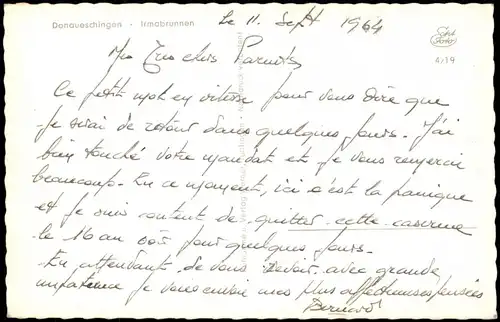 Donaueschingen - Irmabrunnen
Le 11 Sept 1964
Mes Très chers Parents
Ce petit mot en vitesse pour vous dire que
je serai de retour dans quelques jours. J'ai
bien touché votre mandat et je vous remercie
beaucoup. En ce moment, ici c'est la panique
et je suis content de quitter cette caserne
le 16 au soir pour quelques jours.
En attendant de vous revoir avec grande
impatience je vous envoie mes plus affectueuses pensées
Bernard
Echt
Foto
4/19